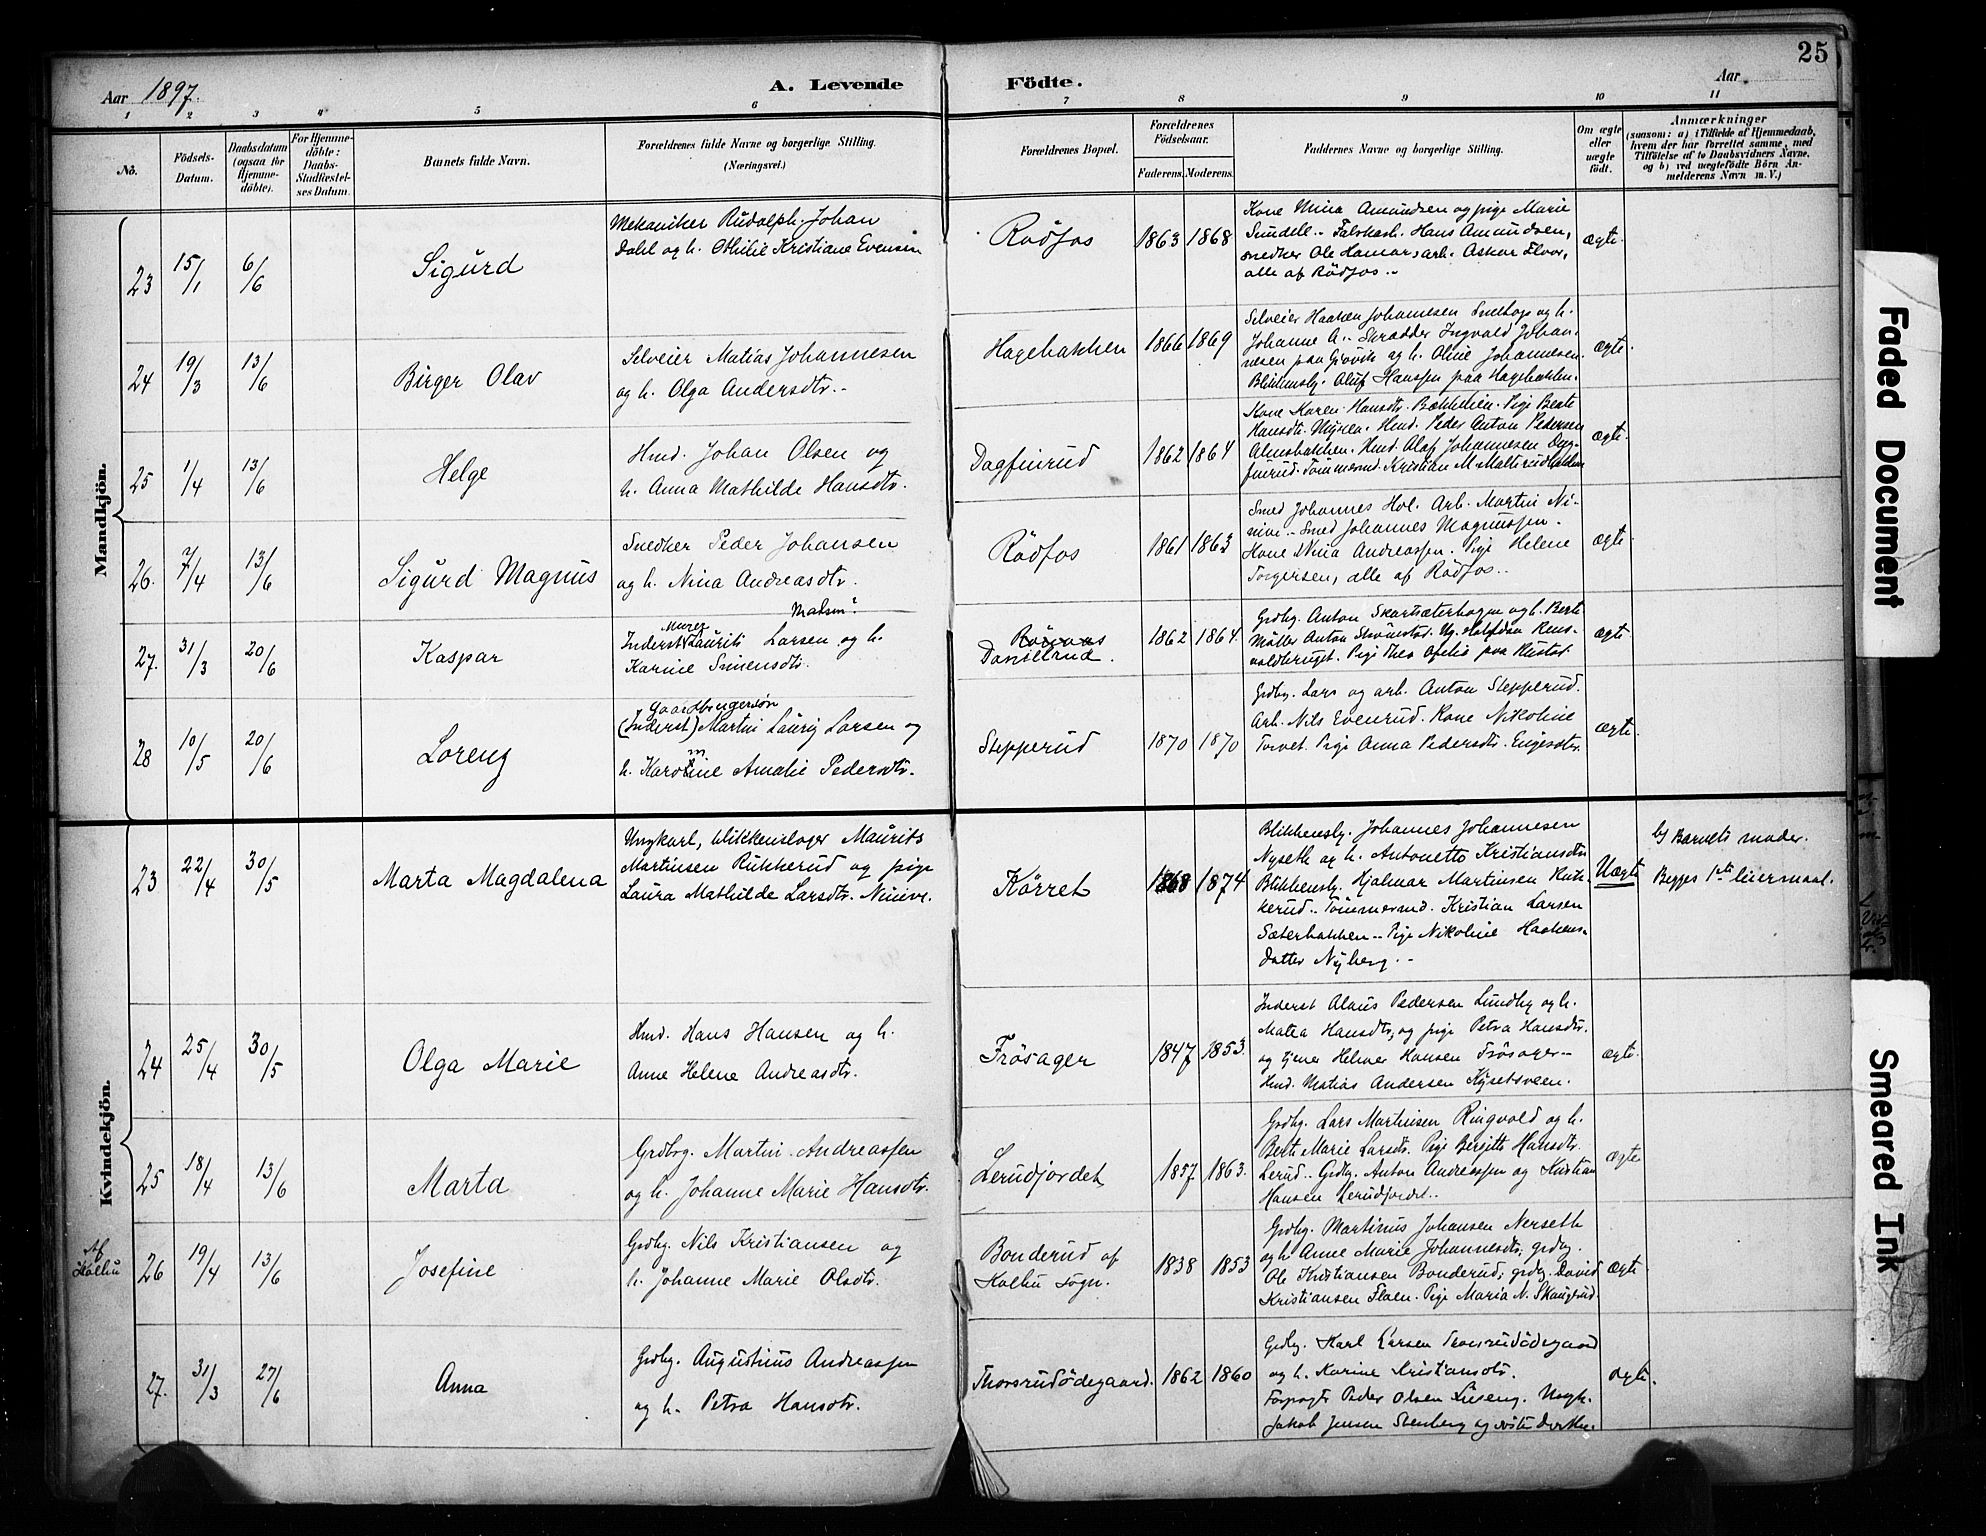 25
Aar 1897.
A. Levende
Födte.
Aar
1 2 3 4 5 6 7 8 9 10 11
No.
Födsels-
Datum.
Daabsdatum
(ogsaa for
Hjemme-
döbte).
For Hjemme-
döbte:
Daabs-
Stadfæstel-
ses Datum.
Barnets fulde Navn.
Forældrenes fulde Navne og borgerlige Stilling.
(Næringsvei.)
Forældrenes Bopæl.
Forældrenes
Födselsaar.
Faderens. Moderens.
Faddernes Navne og borgerlige Stilling.
Om ægte
eller
uægte
födt.
Anmærkninger
(saasom: a) i Tilfælde af Hjemmedaab,
hvem der har forrettet samme, med
Tilföielse af to Daabsvidners Navne,
og b) ved uægtefödte Börn An-
melderens Navn m. V.)
Mandkjön.
23 15/1 6/6 Sigurd
Mekaniker Rudolph Johan
Dahl og h. Othilie Kristiane Evensen
Rödfos 1863 1868
Kone Mina Amundsen og pige Marie
Sundell. Fabrikarb. Hans Amundsen,
snedker Ole Hamar, arb. Askar
alle af Rödfos.
ægte.
24 19/3 13/6 Birger Olav
Selveier Matias Johannesen
og h. Olga Andersdtr.
Hagebakken 1866 1869
Selveier Haaken Johannesen og h.
Johanne A. Skrædder Ingvald Johan-
nesen paa Gjövik og h. Oline Johannesen.
Blikkensly. Oluf Hanssen paa Hagebakken.
ægte.
25 1/4 13/6 Helge
Hmd. Johan Olsen og
h. Anna Mathilde Hansdtr.
Dagfinrud 1862 1864
Kone Karen Hansdtr. Bækkelien. Pige Beate
Hansdtr. Myren. Hmd. Peder Anton Pedersen
Almsbakken. Hmd. Olaf Johannesen Dag-
finrud. Tömmermd. Kristian M.
ægte.
26. 7/4 13/6 Sigurd Magnus
Snedker Peder Johansen
og h. Nina Andreasdtr.
Rödfos 1861 1863
Smed Johannes Hol. Arb. Martin Ni-
nive. Smed Johannes Magnussen.
Kone Nina Andreassen. Pige Helene
Torgersen, alle af Rödfos.
ægte.
27. 31/3 20/6 Kaspar
Murer
Inderst Laurits Larsen og h.
Karine Simensdtr.
Danielrud. 1862 1864.
Grdbg. Anton og h. Berte
Möller Anton
Pige Thea paa
ægte
28 10/5 20/6 Lorenz
Gaardbrugersön
(Inderst) Martin Laurig Larsen og
h. Karoline Amalie Pedersdtr.
Stepperud 1870 1870
Grdbg. Lars og arb. Anton Stepperud.
Arb. Nils Evenrud. Kone Nikoline
Torvet. Pige Anna Pedersdtr.
ægte.
Kvindekjön.
23 22/4 30/5 Marta Magdalena
Ungkarl, blikkenslager Maurits
Martinsen Rukkerud og pige
Laura Mathilde Larsdtr. Ninive.
Körret 1868 1874
Blikkensly. Johannes Johannesen
Nyseth og h. Antonette Kristiansdtr.
Blikkensly. Hjalmar Martinsen Ruk-
kerud. Tömmermd. Kristian Larsen
Sæterbakken. Pige Nikoline Haakens-
datter Nyberg.
Uægte
b) Barnets moder.
Begges 1ste leiermaal.
24 25/4 30/5 Olga Marie
Hmd. Hans Hansen og h.
Anne Helene Andreasdtr.
Frösager 1847 1853.
Inderst Olaus Pedersen Lundby og h.
Matea Hansdtr, og pige Petra Hansdtr.
og tjener Helmer Hansen Frösager.
Hmd. Matias Andersen Kysetsveen.
ægte.
25 18/4 13/6 Marta
Grdbrg. Martin Andreassen
og h. Johanne Marie Hansdtr.
Lerudjordet 1857 1863.
Grdbg. Lars Martinsen Ringvold og h.
Berte Marie Larsdtr. Pige Bergitte Hansdtr.
Lerud. Grdbg. Anton Andreassen og Kristian
Hansen Lerudjordet.
ægte
Af
Kolbu
26 19/4 13/6 Josefine
Grdbg. Nils Kristiansen og
h. Johanne Marie Olsdtr.
Bonderud af
Kolbu Sogn. 1838 1853
Grdbg. Martinus Johansen Nerseth
og h. Anne Marie Johannesdtr, grdbg.
Ole Kristiansen Bonderud, grdbg. David
Kristiansen Floen. Pige Maria N. Skaugerud.
ægte.
27. 31/3 27/6 Anna
Grdbg. Augustinus Andreassen
og h. Petra Hansdtr.
Thorsrudödegaard. 1862 1860
Grdbg. Karl Larsen Thorsrudödegaard
og h. Karine Kristiansdtr.
Forpagt. Peder Olsen Ungk.
Jakob Jensen Stenberg og
ægte.
Faded Document
Smeared Ink